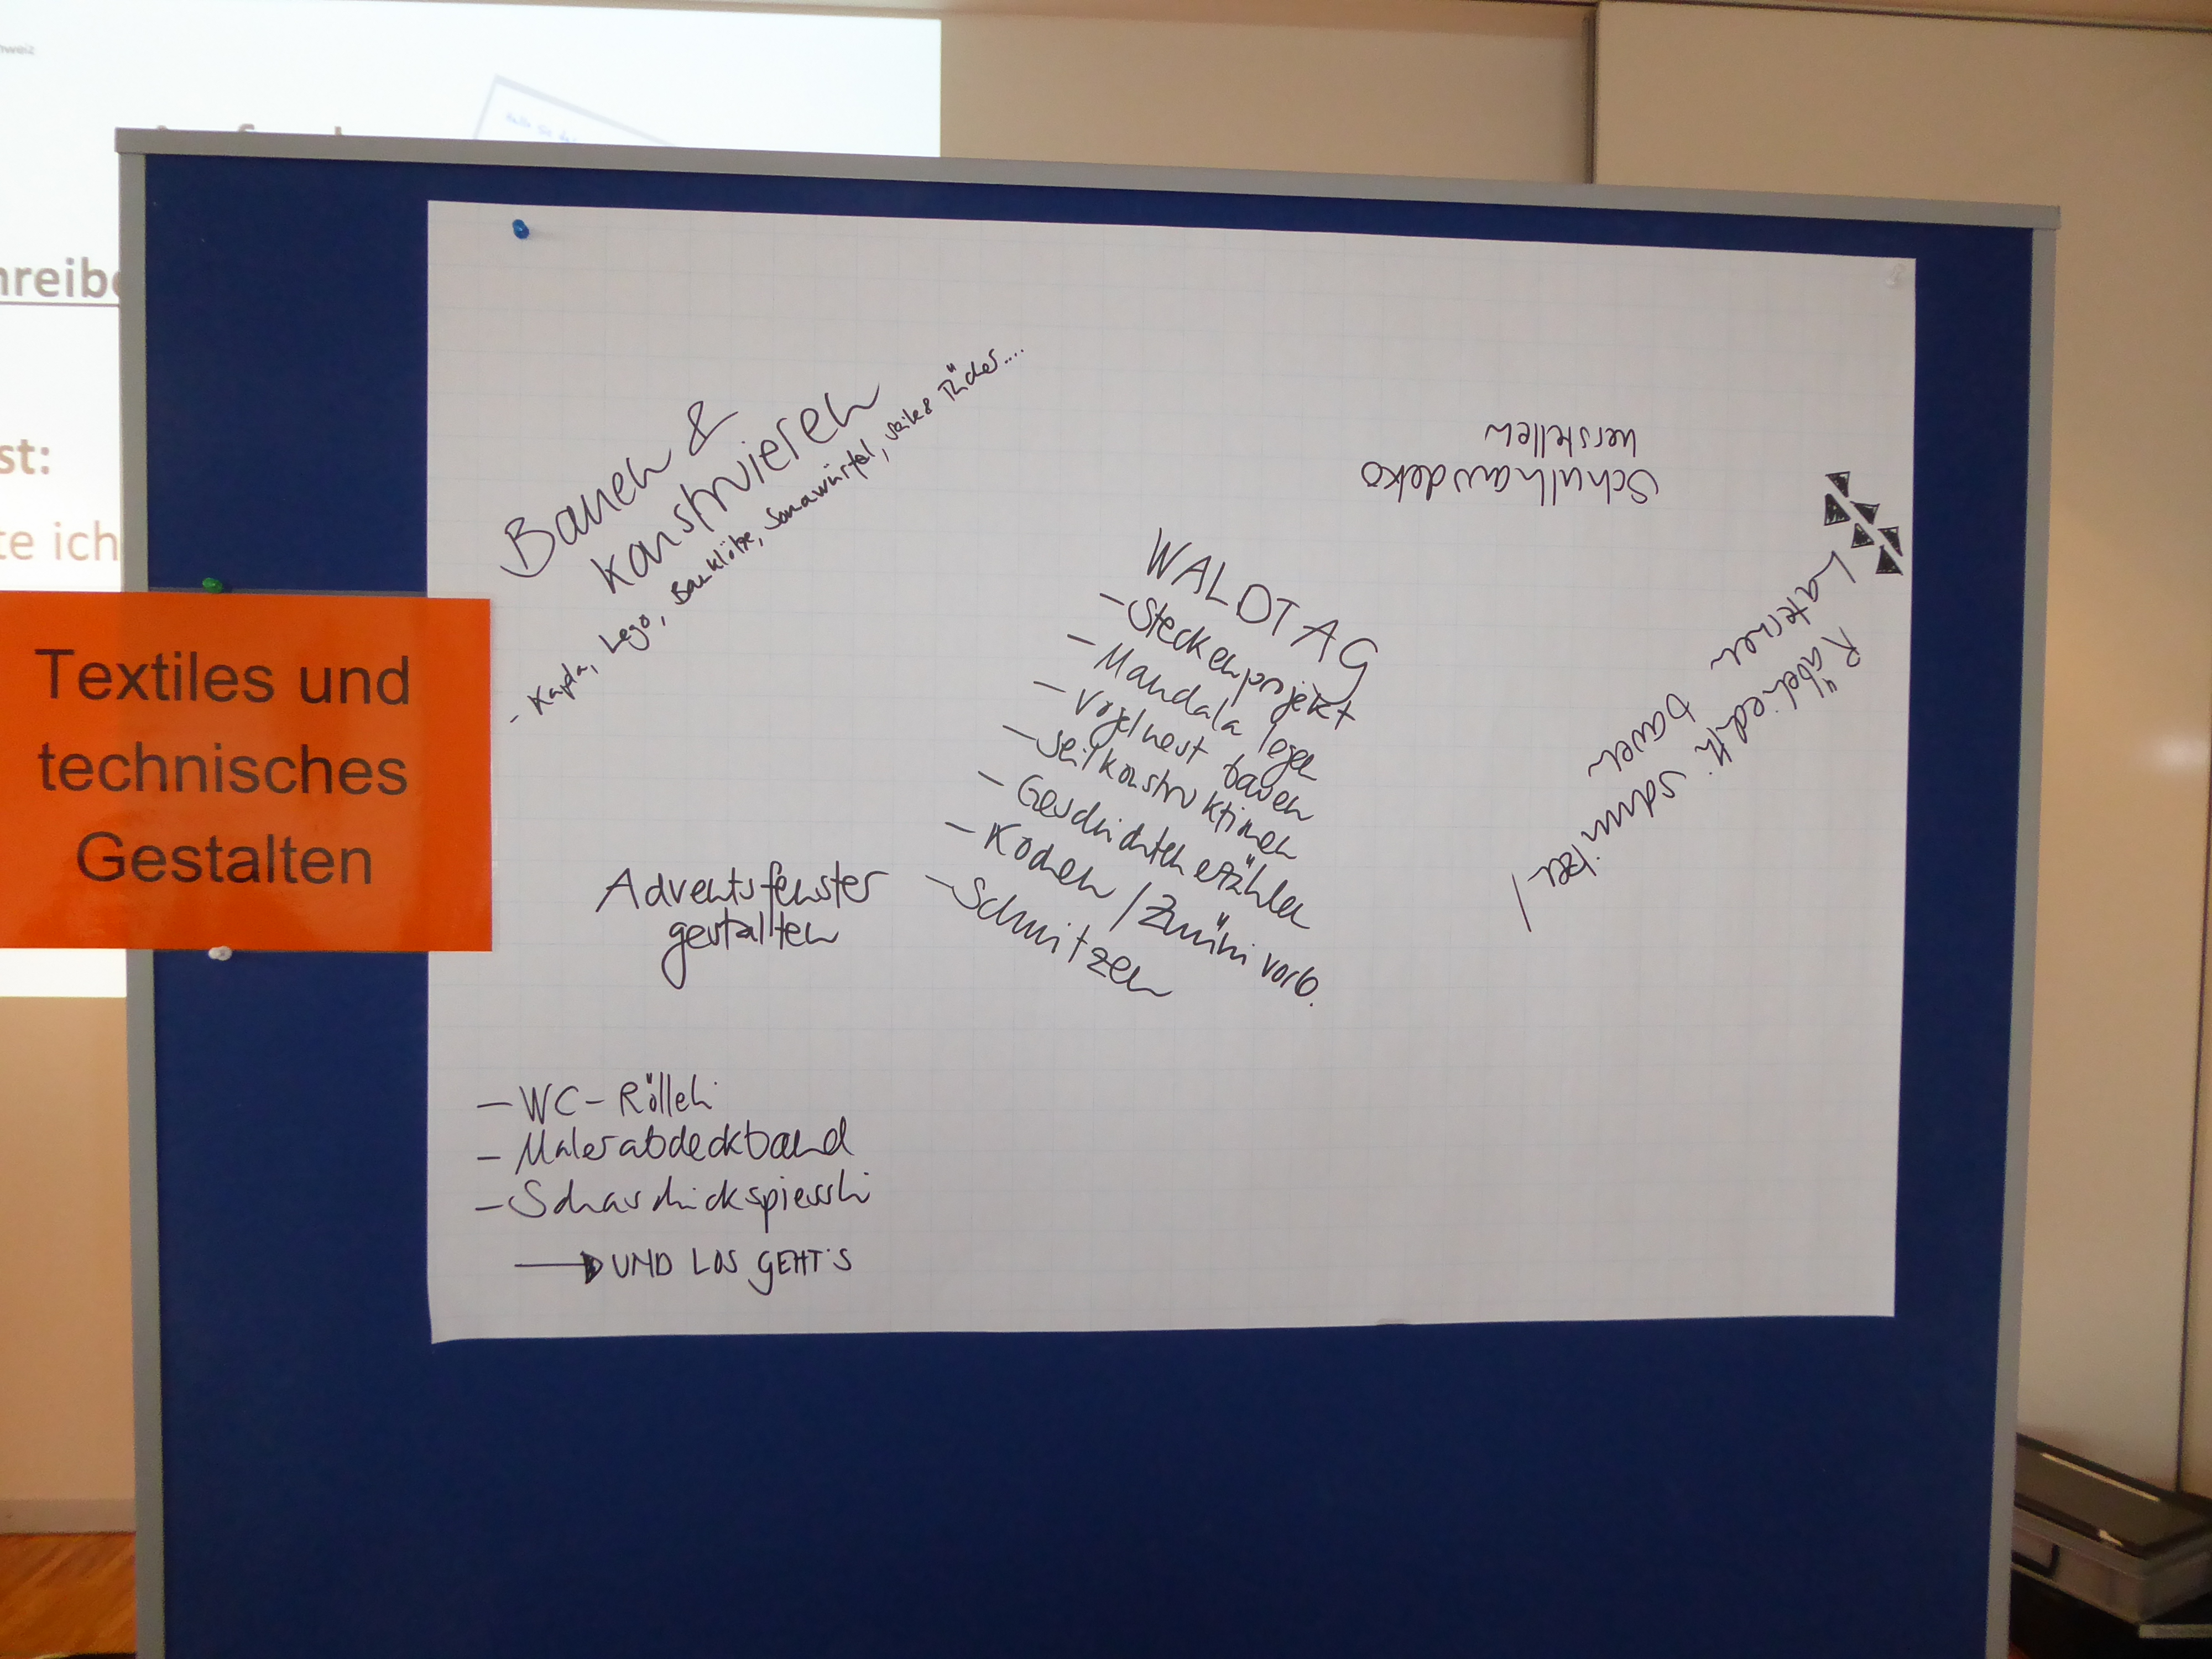 hreibe
st:
te ich
Textiles und
technisches
Gestalten
Bauen &
konstruieren
- Kapla, Lego, Bauklötze, Somawürfel, Seile & Tücher....
Schulhausdeko
herstellen
WALDTAG
- Steckenprojekt
- Mandala legen
- Vogelnest bauen
- Seilkonstruktionen
- Geschichten erzählen
- Kochen / Znüni vorb.
- Schnitzen
Räbeliechtli schnitzen /
Laternen bauen
Adventsfenster
gestalten
- WC-Rölleli
- Malerabdeckband
- Schaschlickspiessli
UND LOS GEHT'S